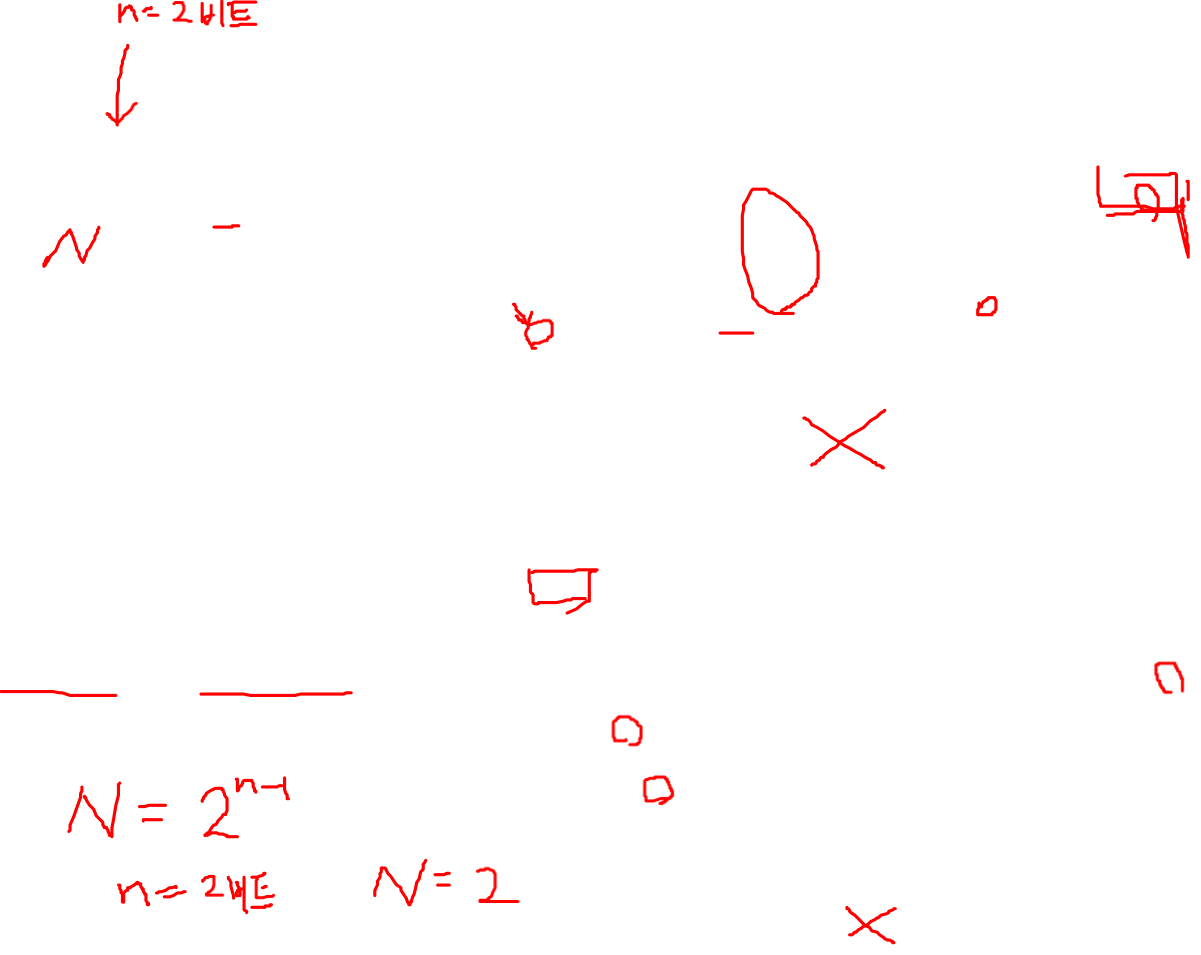 n=2비트
N
N=2^{n-1}
n=2비트 N=2